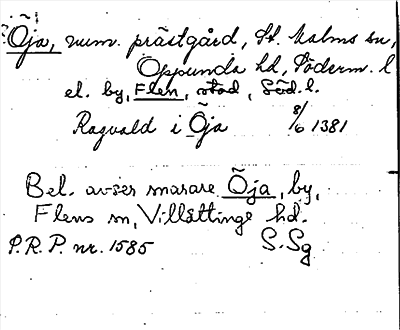 Öja, num. prästgård, St. Malms sn,
Oppunda hd, Söderm. l
el. by, Flen, stad, Söd. l.
Ragvald i Öja 8/6 1381
Bel. avser snarare Öja, by,
Flens sn, Villåttinge hd.
P.R.P. nr. 1585 S. Sg